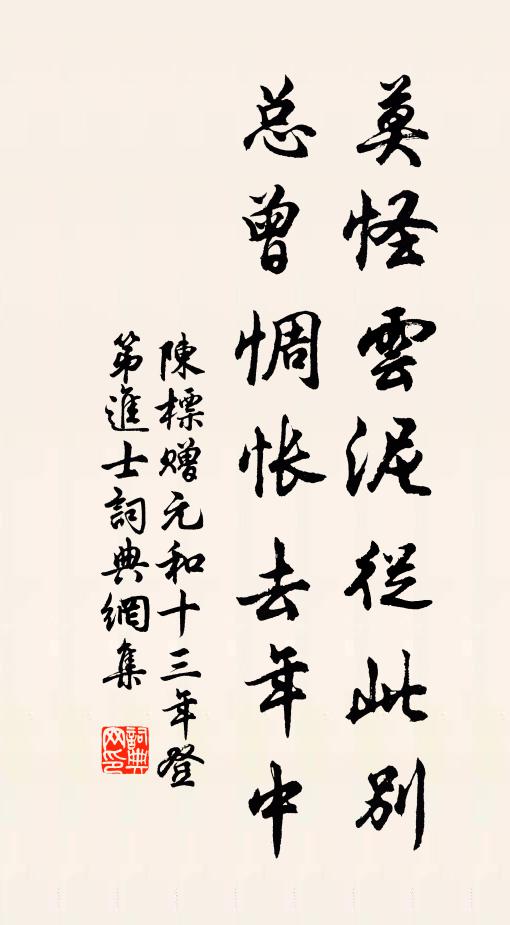 莫怪雲泥從此別
总曾惆怅去年中
陳標贈元和十三年登
第進士詞典網集
詞典
网印